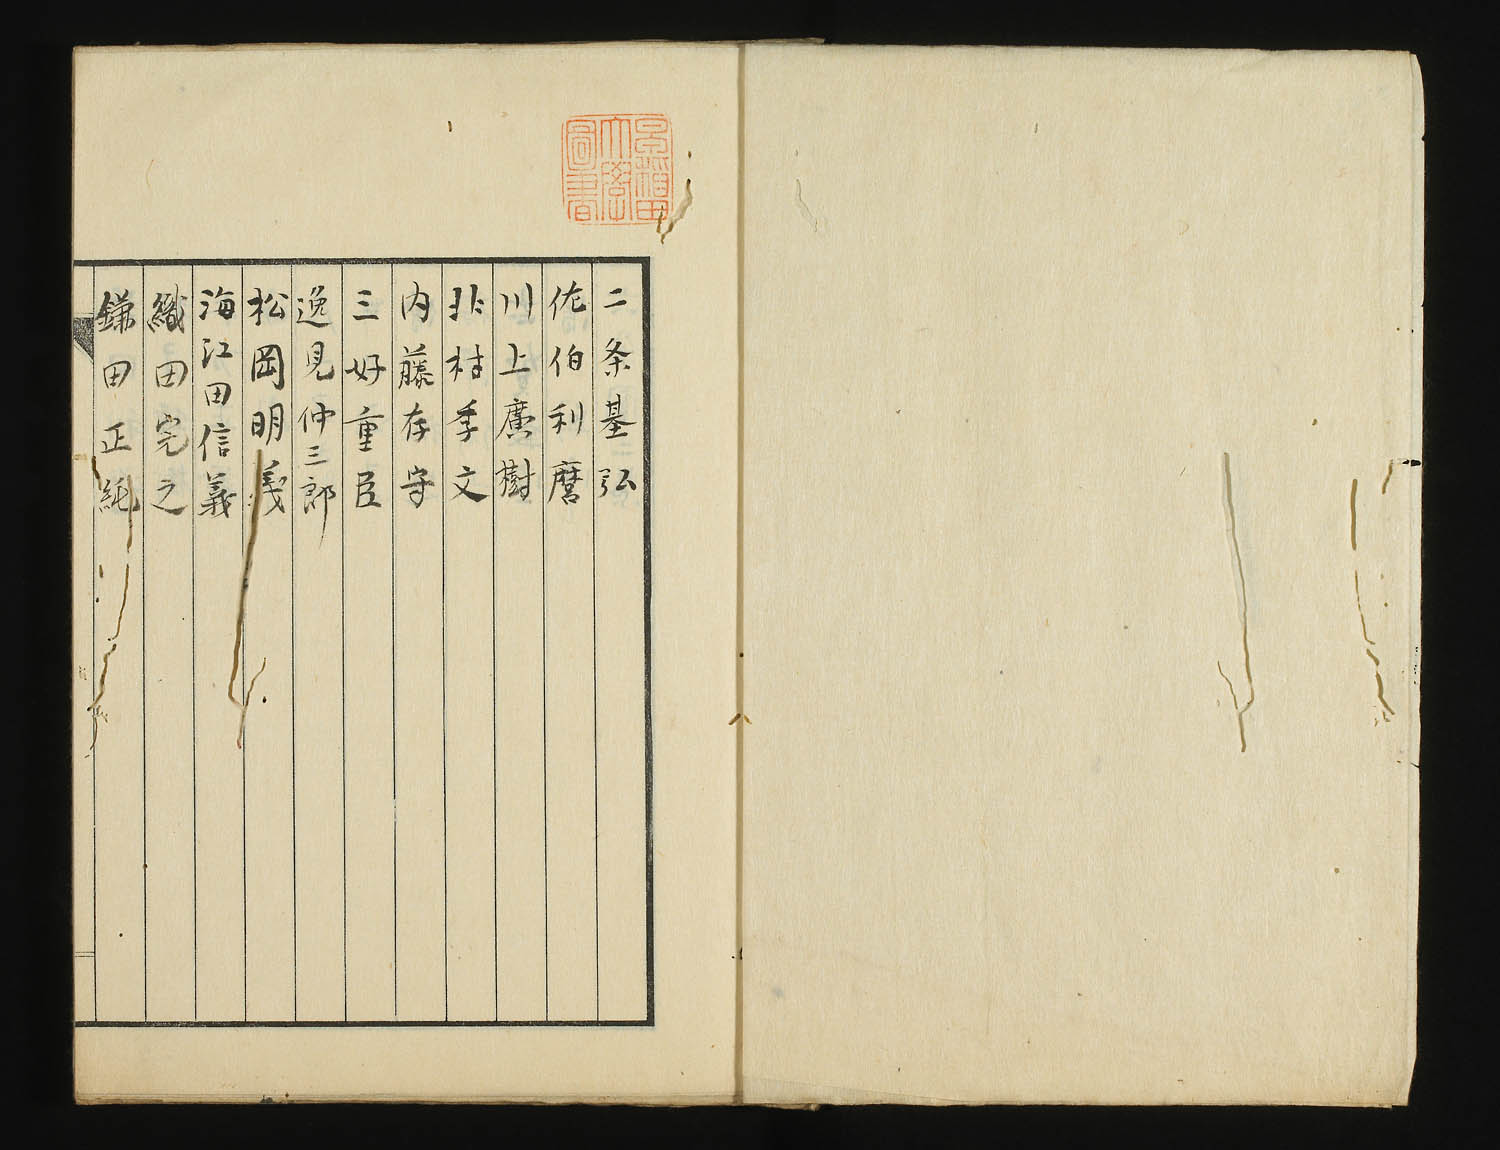 早稲田
大學
圖書
二条基弘
佐伯利麿
川上廣樹
北村季文
内藤存守
三好重臣
逸見仲三郎
松岡明義
海江田信義
織田完之
鎌田正純